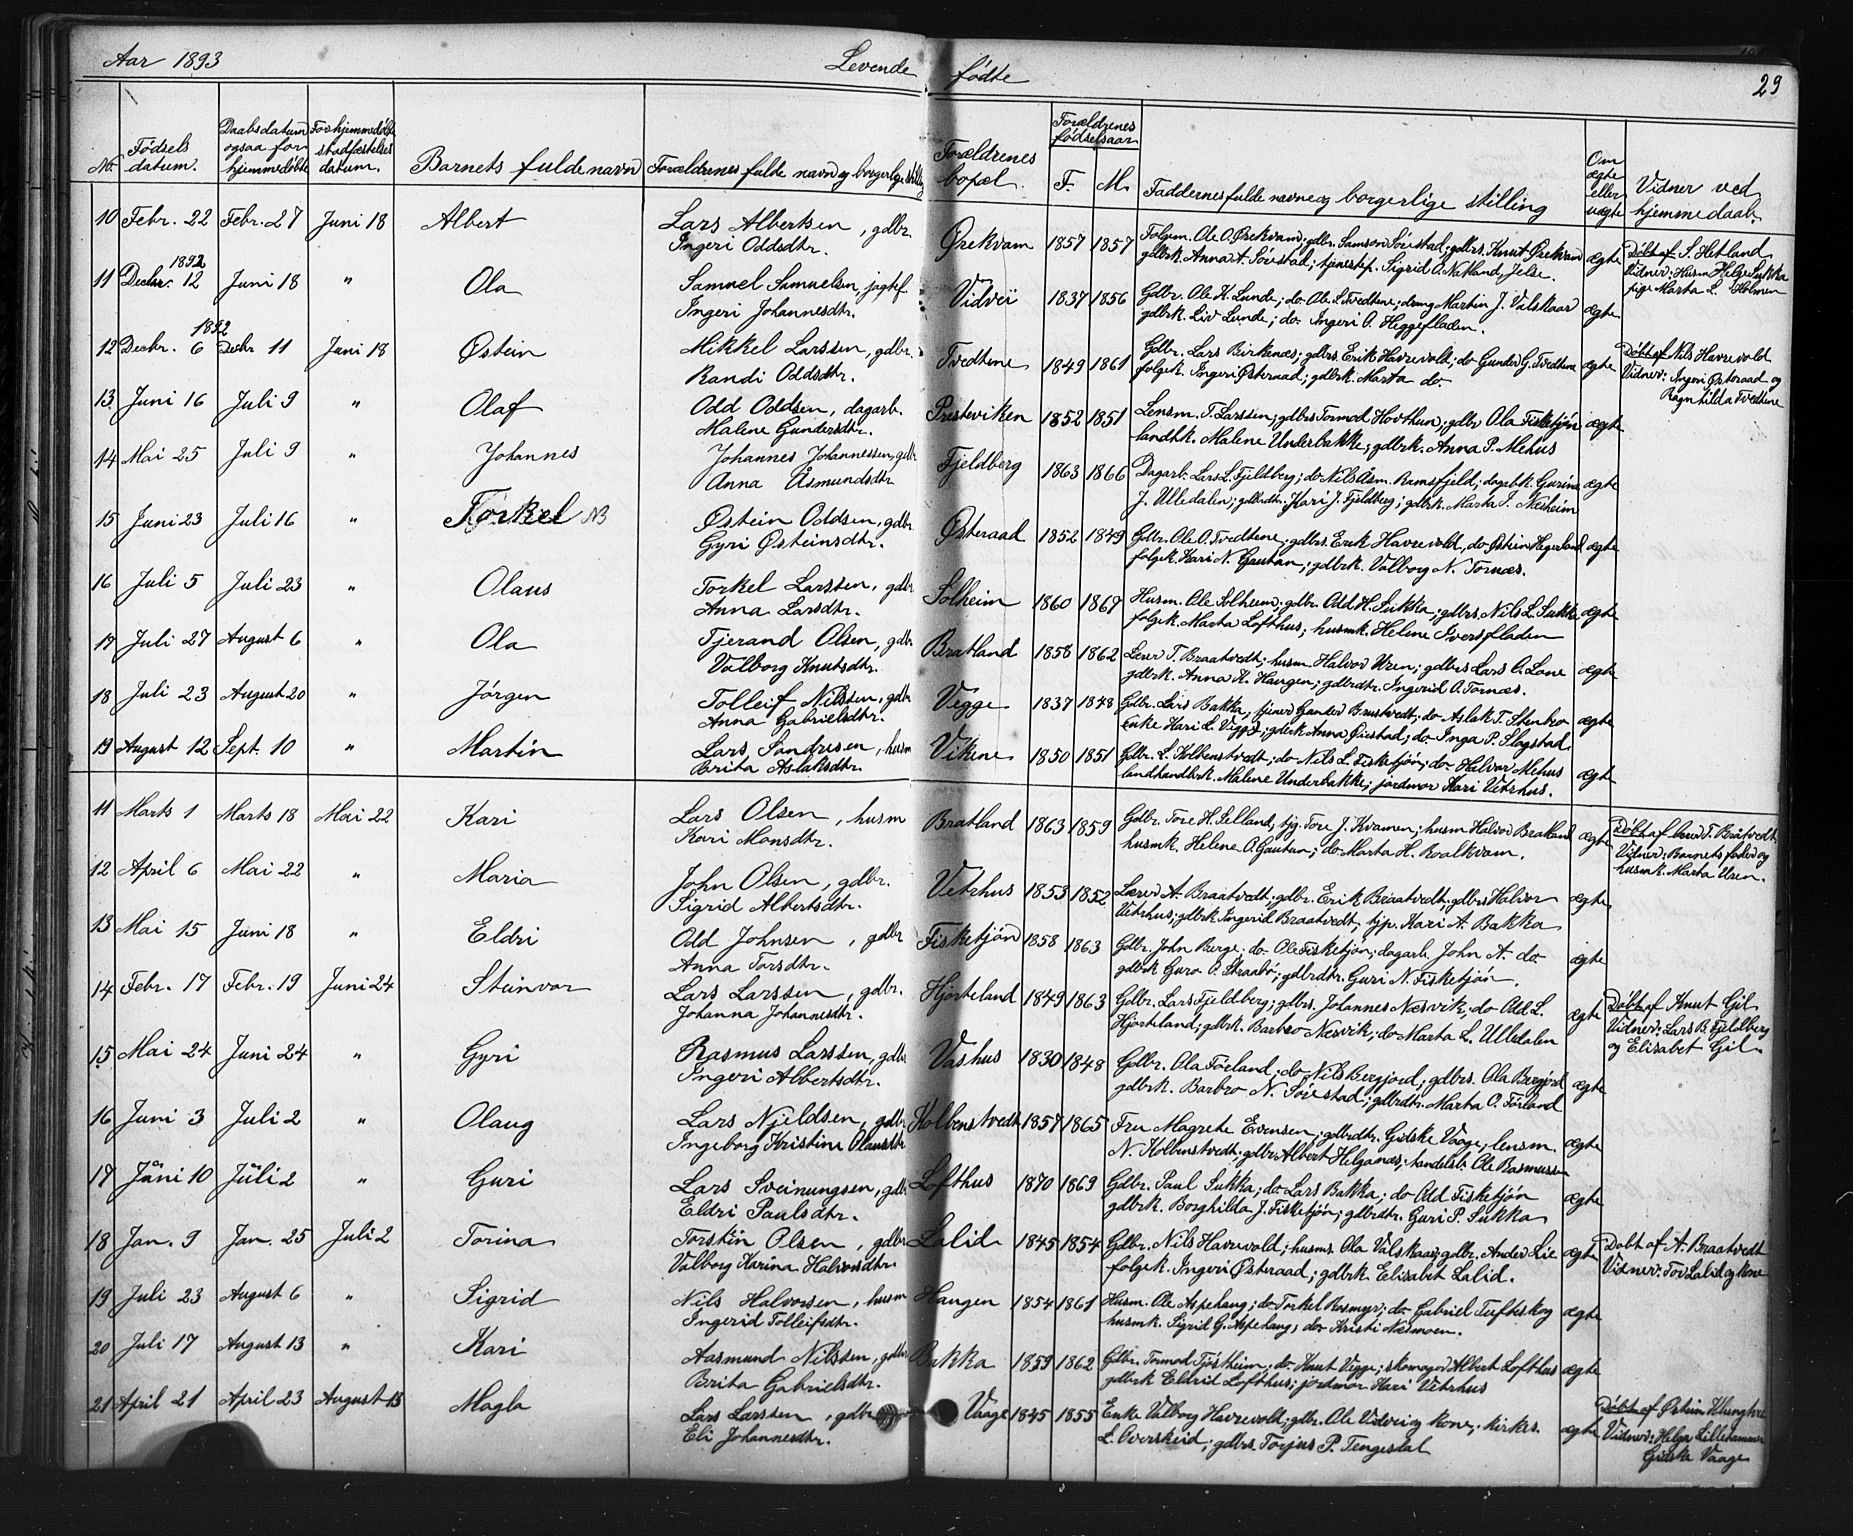 Aar 1893 Levende fødte 29
No. Fødsels datum. Daabsdatum ogsaa for hjemmedøbte For hjemmedøbte stadfæstelses datum. Barnets fulde navn Forældrenes fulde navn og borgerlige stilling Forældrenes bopæl. Forældrenes fødselsaar F. M. Faddernes fulde navne og borgerlige stilling Om ægte eller uægte Vidner ved hjemmedaab.
10 Febr. 22 Febr. 27 Juni 18 Albert Lars Albertsen, gdbr. Ørekvam 1857 1857 Folgem. Ole O. Ørekvam; gdbr. Samson Sørestad; gdbrs. Knut Ørekvam ægte Døbt af S. Hetland
Ingeri Oddsdtr. gdbrk. Anna A. Sørestad; tjenestep. Sigrid O. Natland, Jelse. Vidner: Husm Helge Sukka
1892
11 Decbr. 12 Juni 18 " Ola Samuel Samuelsen, jagtef. Vidvei 1837 1856 Gdbr. Ole K. Lunde; do Ole S. Tvedtene; dreng Martin J. Valskaar ægte pige Marta L. Holmen
Ingeri Johannesdtr. gdbrk. Liv Lunde; do Ingeri O. Heggefladen.
1892
12 Decbr. 6 Decbr 11 Juni 18 Østein Mikkel Larssen, gdbr. Tvedtene 1849 1861 Gdbr. Lars Birkenæs; gdbrs. Erik Havrevold; do Gunder G. Tvedtene ægte Døbt af Nils Havrevold
Randi Oddsdtr. folgek. Ingeri Østeraad; gdbrk. Marta do Vidner: Ingeri Østeraad og
Ragnhilda Tvedtene
13 Juni 16 Juli 9 " Olaf Odd Oddsen, dagarb. Presteviken 1852 1851 Lensm. T. Larssen; gdbrs Tormod Hovthun; gdbr Ola Fisketjøn ægte
Malene Gundersdtr. landhk. Malene Underbakke; gdbrk. Anna P. Mehus
14 Mai 25 Juli 9 " Johannes Johannes Johannessen, gdbr Fjeldberg 1863 1866 Dagarb. Lars L. Fjeldberg; do Nils Åsm. Ramsfjeld; dagarbk. Gurina ægte
Anna Åsmundsdtr J. Ulledalen; gdbrdtr. Kari J. Fjeldberg; gdbrk. Marta I. Næsheim
15 Juni 23 Juli 16 " Torkel NB Østein Oddsen, gdbr. Østeraad 1852 1849 Gdbr. Ole O. Tvedtene; gdbrs. Erik Havrevold, do Østein Hegerland ægte
Gyri Østeinsdtr. folgek. Kari N. Gautun; gdbrk. Valborg N. Tornæs.
16 Juli 5 Juli 23 " Olaus Torkel Larssen, gdbr Solheim 1860 1867 Husm. Ole Solheim; gdbr. Odd H. Sukka; gdbrs. Nils L. Sukka ægte
Anna Larsdtr. folgek. Marta Lofthus; husmk. Helene Iversfladen
17 Juli 27 August 6 " Ola Tjerand Olsen, gdbr Bratland 1858 1862 Lærer T. Braatvedt; husm. Halvor Uren; gdbrs Lars O. Lone ægte
Valborg Knutsdtr. gdbrk. Anna K. Haugen; gdbrdtr. Ingerid O. Tornæs.
18 Juli 23 August 20 " Jørgen Tolleif Nilssen, gdbr Vegge 1837 1848 Gdbr. Lars Bakka; tjener Gunder Braatvedt; do Aslak T. Stenbro ægte
Anna Gabrielsdtr. Enke Kari L. Vegge; gdbrk Anna Øiestad; do Inga P. Slagstad.
19 August 12 Sept. 10 " Martin Lars Sandresen, husm Vikene 1850 1851 Gdbr. L. Kolbenstvedt; do Nils L. Fisketjøn; do Halvor Mehus ægte
Brita Aslaksdtr. landhandlerk. Malene Underbakke; jordmor Kari Vetrhus.
11 Marts 1 Marts 18 Mai 22 Kari Lars Olsen, husm Bratland 1863 1859 Gdbr. Tore H. Selland; tjg. Tore J. Kvamen; husm Halvor Bratland ægte Døbt af lærer T. Braatvedt
Kari Monsdtr. husmk. Helene O. Gautun; do Marta H. Roalkvam. Vidner: Barnets fader og
husmk. Marta Uren.
12 April 6 Mai 22 " Maria John Olsen, gdbr. Vetrhus 1853 1852 Lærer A. Braatvedt; gdbr. Erik Braatvedt; gdbrs Halvor ægte
Sigrid Albertsdtr. Vetrhus; gdbrk Ingerid Braatvedt, tjp. Kari A. Bakka
13 Mai 15 Juni 18 " Eldri Odd Johnsen, gdbr Fisketjøn 1858 1863 Gdbr. John Berge; do Ole Fisketjøn; dagarb. John A. do ægte
Anna Torsdtr. gdbrk Guro O. Straabø; gdbrdtr. Guri N. Fisketjøn.
14 Febr. 17 Febr. 19 Juni 24 Steinvor Lars Larssen, gdbr. Hjorteland 1849 1863 Gdbr. Lars Fjeldberg; gdbrs. Johannes Næsvik; do Odd L. ægte Døbt af Knut Gil
Johanna Johannesdtr. Hjorteland; gdbrk. Barbro Næsvik; do Marta L. Ulledalen Vidner: Lars B. Fjeldberg
og Elisabet Gil.
15 Mai 24 Juni 24 " Gyri Rasmus Larssen, gdbr Vashus 1830 1848 Gdbr. Ola Føreland; do Nils Bergjord; gdbrs. Ola Bergjord ægte
Ingeri Albertsdtr. gdbrk. Barbro N. Sørestad; gdbrdtr. Marta O. Førland
16 Juni 3 Juli 2 " Olaug Lars Njeldsen, gdbr Kolbenstvedt 1857 1865 Fru Magrete Evensen; gdbrdtr. Gidske Vaage; lensm. ægte
Ingeborg Kristine Olausdtr N. Kolbenstvedt; gdbr Albert Helganæs; handelsb. Ole Rasmussen
17 Juni 10 Juli 2 " Guri Lars Sveinungsen, gdbr Lofthus 1870 1869 Gdbr. Paul Sukka; do Lars Bakka; do Odd Fisketjøn ægte
Eldri Paulsdtr. gdbrk. Borghilda J. Fisketjøn; gdbrdtr. Guri P. Sukka
18 Jan. 9 Jan. 25 Juli 2 Torina Torstin Olsen, gdbr Lalid 1845 1854 Gdbr. Nils Havrevold; husms. Ola Valskaar; gdbr. Anders Lie ægte Døbt af A. Braatvedt
Valborg Karina Halvorsdtr. folgek. Ingeri Østeraad; gdbrk. Elisabet Lalid. Vidner: Tor Lalid og kone
19 Juli 23 August 6 " Sigrid Nils Halvorsen, husm Haugen 1854 1861 Husm. Ole Aspehaug; do Torkel Rosmyr; do Gabriel Tufteskog ægte
Ingerid Tolleifsdtr. husmk. Sigrid G. Aspehaug; do Kristi Næsmoen.
20 Juli 17 August 13 " Kari Aasmund Nilssen, gdbr Bakka 1859 1862 Gdbr. Tormod Tjøstheim; do Knut Vegge; skomager Albert Lofthus ægte
Brita Gabrielsdtr. gdbrk Eldrid Lofthus; jordmor Kari Vetrhus
21 April 21 April 23 August 13 Magla Lars Larssen, gdbr Vaage 1845 1855 Enke Valborg Havrevold; gdbr. Ole Vidvei og kone; kirkes. ægte Døbt af Østein Klunghre
Eli Johannesdtr. L. Overskeid; gdbrs. Torjus P. Tengesdal Vidner: Helga Lillehammer
Gidske Vaage